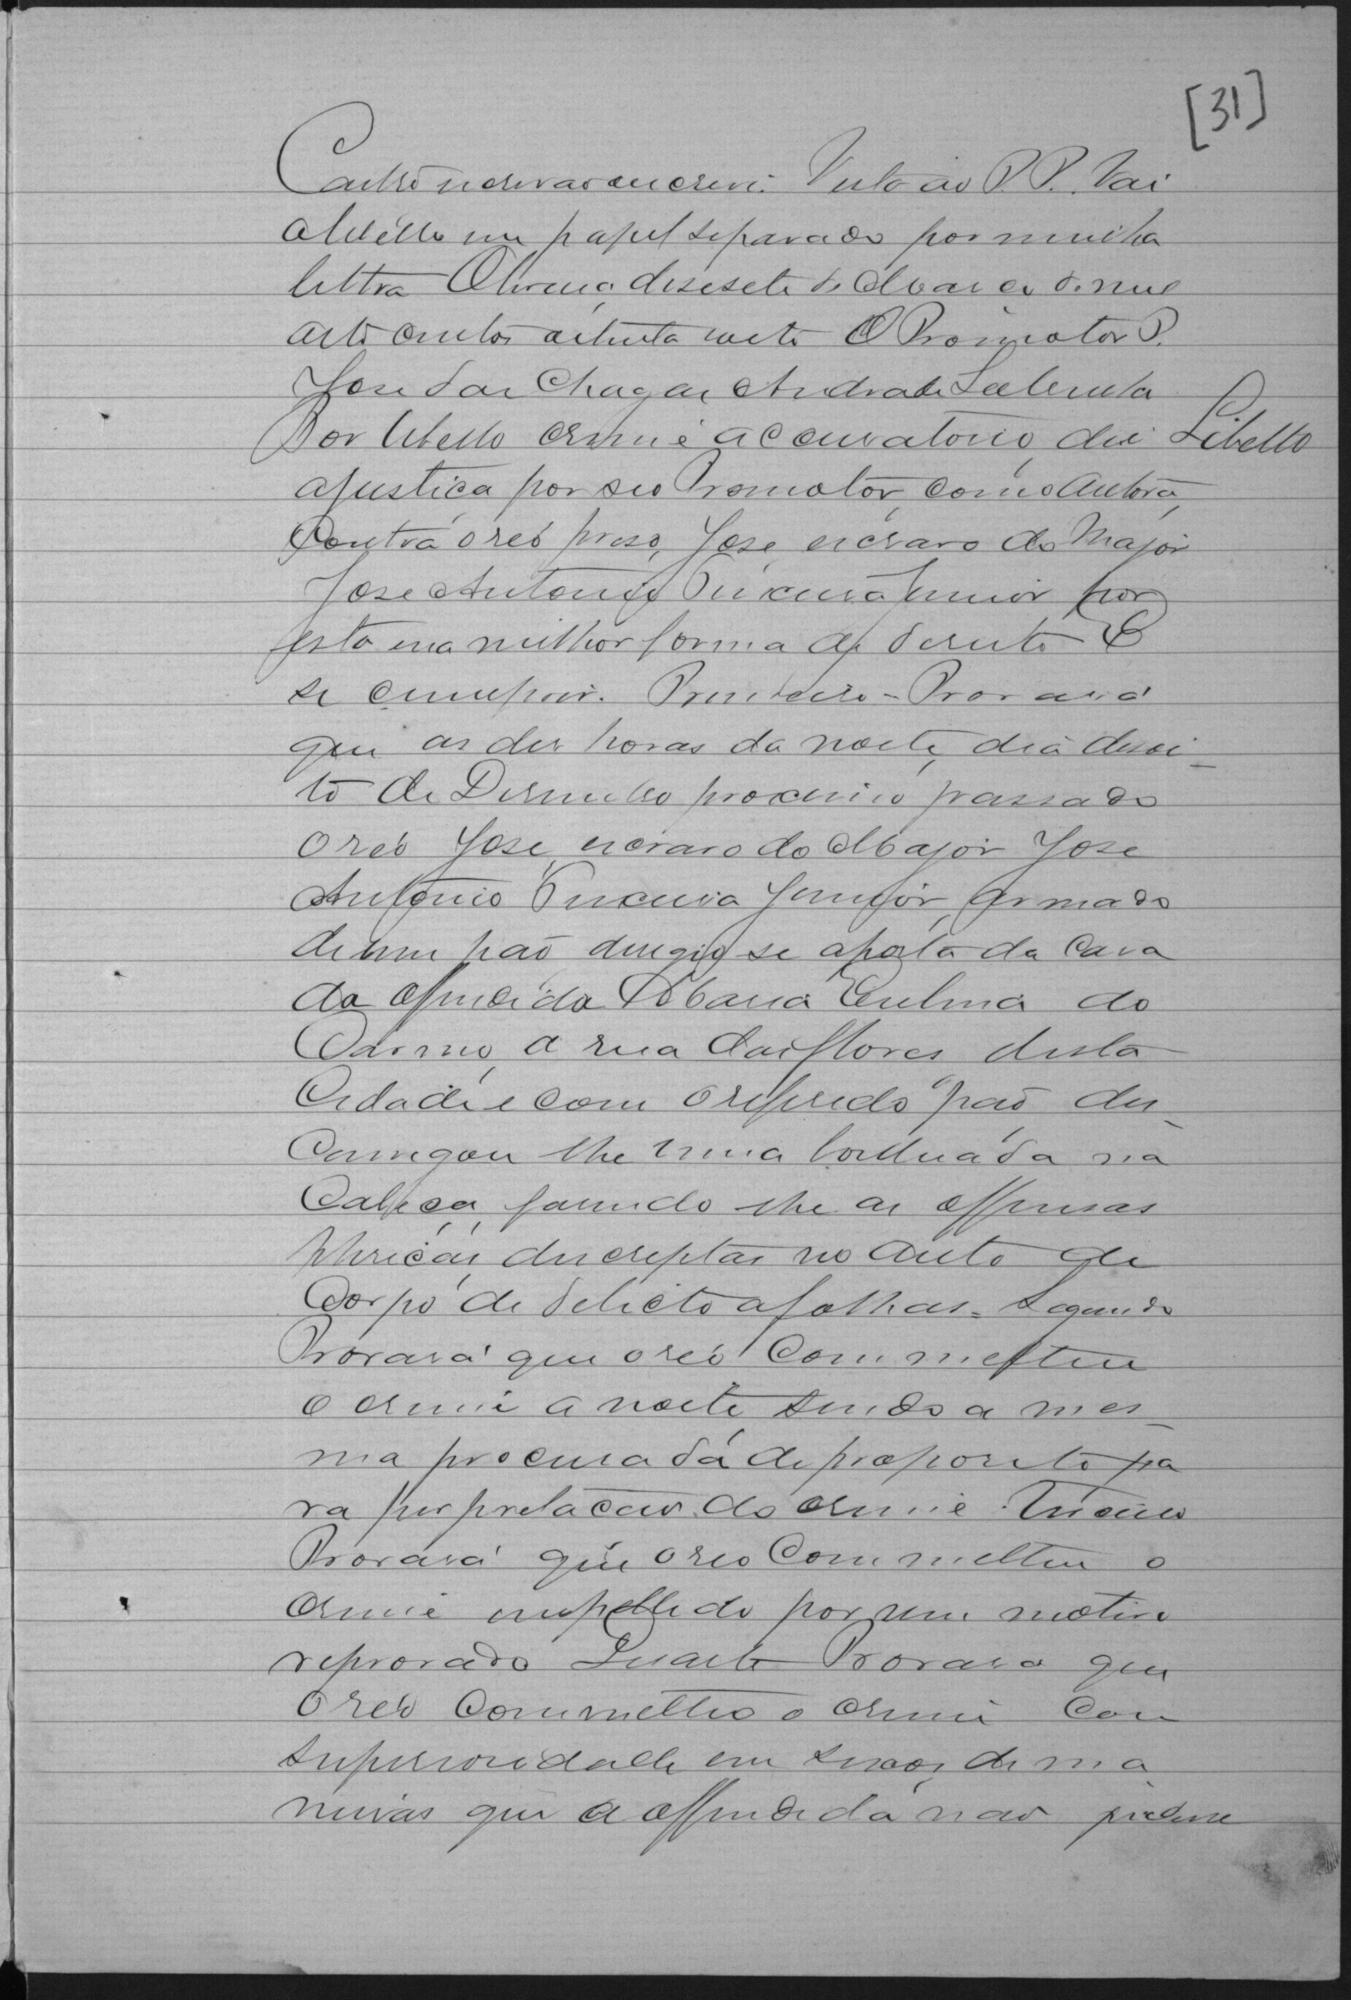 [31]
Castro escrivão escrevi. Visto ao P. P. Vai
o libello em papel separado por minha
lettra Oliveira, desesete de Março de mil
oito centos oitenta oito O Promotor P.
Jose das Chagas Andrade
Por libello crime accusatorio, diz Libello
a justiça por seo Promotor, como Autora,
Contra o reo preso, Jose, escravo do Major
Jose Antonio Teixeira Junior por
esta e na milhor forma de direito E
se cumprir. Primeiro - Provará
que as des horas da noite, dia desoi-
to de Desembro proximo passado
o reo Jose, escravo do Major Jose
Antonio Teixeira Junior, armado
de um pao dirigio se a porta da casa
da offendida Maria do
Carmo, a rua das flores desta
Cidade e com o referido pao des-
carregou lhe uma borduada na
Cabeça, fasendo lhe as offensas
phisicas descriptas no auto de
Corpo de delicto a folhas. Segundo
Provará que o reo Commetteu
o crime a noite sendo a mes-
ma procurada de proposito pa
ra perpretação do crime. Terceiro
Provará que o reo Commetteu o
crime impellido por um motivo
reprovado Quarto Provara que
o reo Commetteo o crime com
superioridade em sexo, de ma
neiras que a offendida não podesse